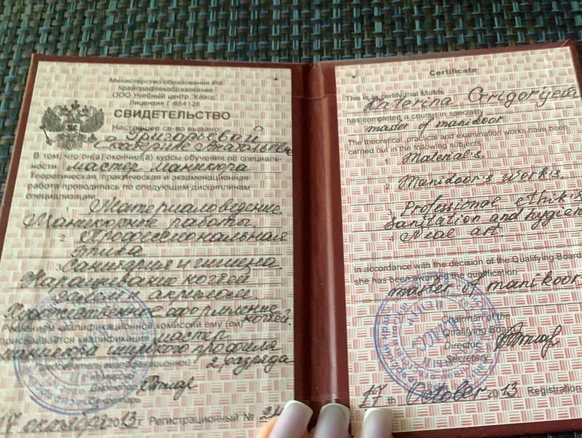 Министерство образования РФ
Крайпрофтехобразование
ООО Учебный центр "Класс"
лицензия Г 664126
СВИДЕТЕЛЬСТВО
Настоящее св-во выдано
Григорьевой
Екатерине Анатольевне
В том, что он(а) окончил(а) курсы обучение по специаль-
ности мастер маникюра
Теоретическая, практическая и экзаменационная
работа проводилась по следующим дисциплинам
специализации
1 Материаловедение
Маникюрные работы
2 Профессиональная
этика
3 Санитария и гигиена
Наращивание ногтей
гелем, акрилом
Художественное оформление
ногтей.
Решением квалификационной комиссии ему (ей)
присваивается квалификация мастер
маникюра широкого профиля
2 разряда
Директор
Секретарь
17 октября 2013 г. Регистрационный № 24
Certificate
This is to certify that Mr/Ms
Katerina Grigorjeva
has completed a course in specialty
master of manidoor
The theoretical, practical and examination works have been
carried out in the following subjects:
Materials
Manidoor's works.
Professional ethiks
Sanitation and hygien
Nial art
In accordance with the decision of the Qualifying Board
she has been awarded the qualification:
master of manikoor
Chairman of the
Qualifying Board
Director
Secretary
17 th October 2013 Registration